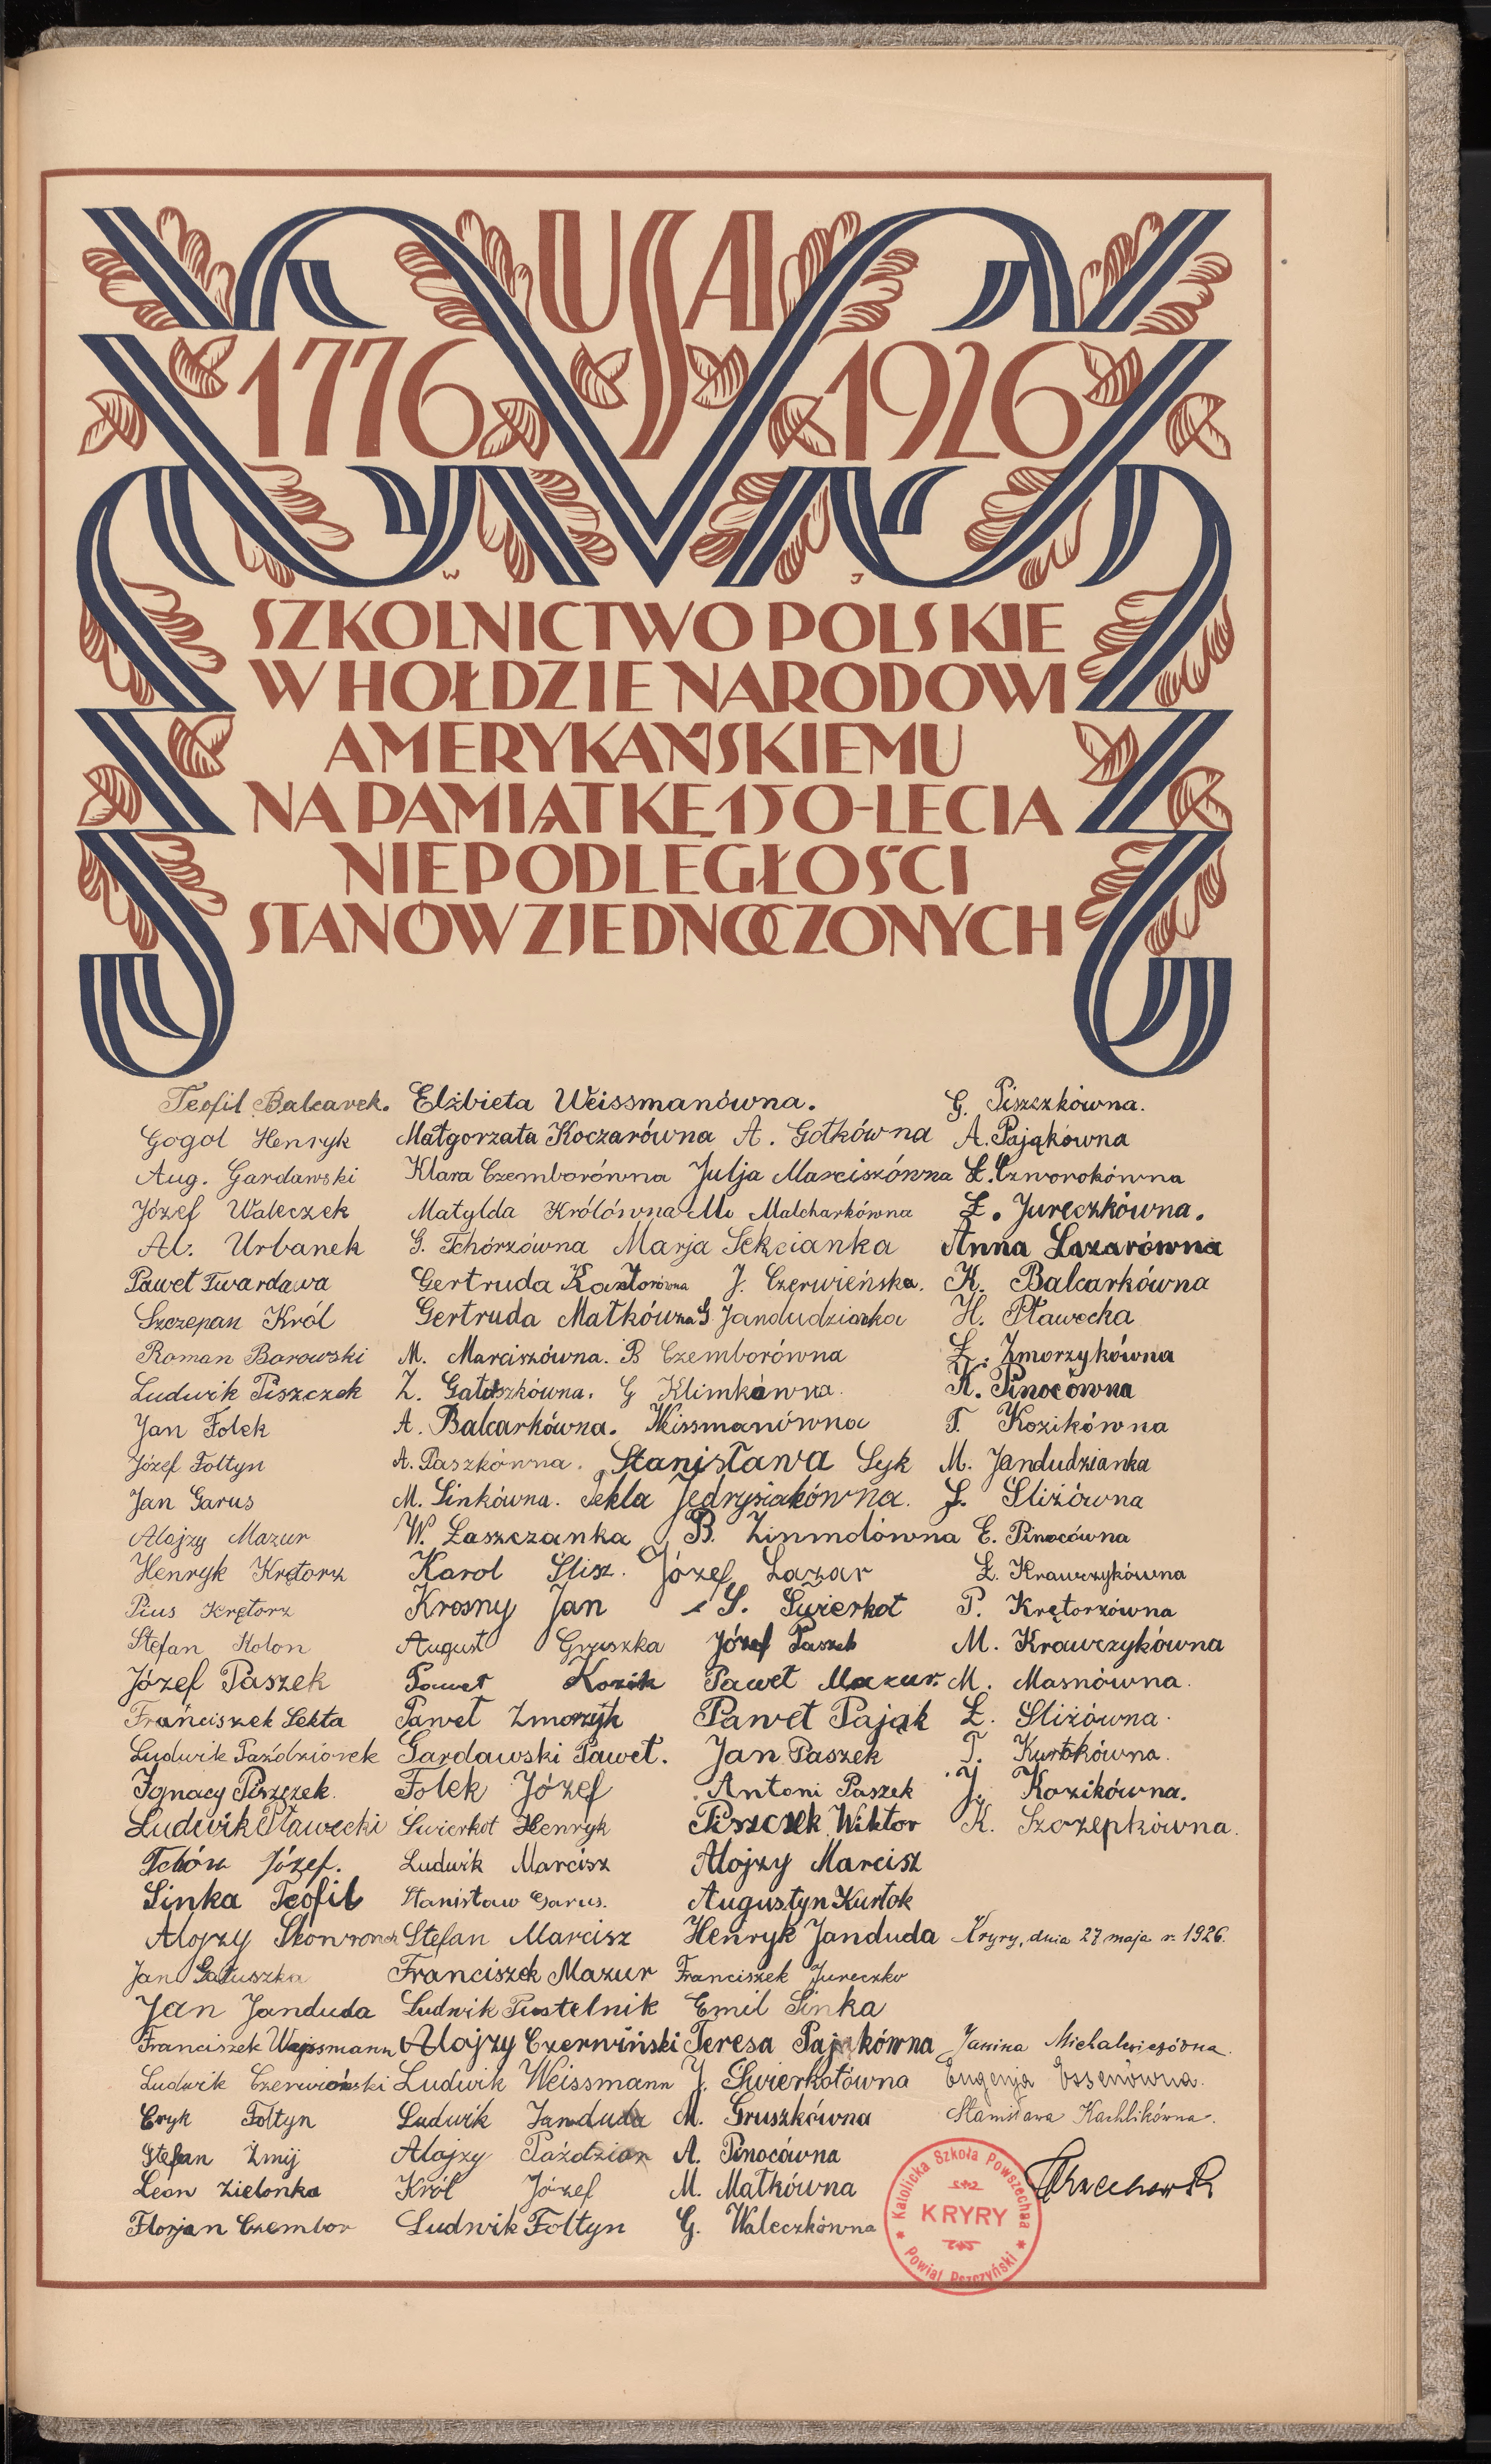 USA
1776 1926
W J
SZKOLNICTWO POLSKIE
W HOŁDZIE NARODOWI
AMERYKAŃSKIEMU
NA PAMIĄTKĘ 150-LECIA
NIEPODLEGŁOŚCI
STANÓW ZJEDNOCZONYCH
Teofil Balcarek. Elżbieta Weissmanówna. G. Piszczkówna.
Gogol Henryk Małgorzata Koczarówna A. Gotkówna A. Pająkówna
Aug. Gardawski Klara Czemborówna Julja Marciszówna Ł. Czworokówna
Józef Waleczek Matylda Królówna M. Malcharkówna Ł. Jureczkówna.
Al. Urbanek G. Tchórzówna Marja Sekcianka Anna Lazarówna
Paweł Twardawa Gertruda Kantorówna J. Czerwieńska. K. Balcarkówna
Szczepan Król Gertruda Małkówna G Jandudzianka H. Pławecka
Roman Borowski M. Marciszówna. B Czemborówna Ł. Zmorzykówna
Ludwik Piszczek Z. Gałuszkówna. G Klimkówna. K. Pinocówna
Jan Folek A. Balcarkówna. Weissmanówna T. Kozikówna
Józef Foltyn A. Paszkówna. Stanisława Syk M. Jandudzianka
Jan Garus M. Sinkówna. Tekla Jędrysiakówna. J. Śliżówna
Alojzy Mazur W. Laszczanka B. Zinmdówna E. Pinocówna
Henryk Krętorz Karol Slisz. Józef Lazar Ł. Krawczykówna
Pius Krętorz Krosny Jan S. Świerkot P. Krętorzówna
Stefan Kolon August Gruszka Józef Paszek M. Krawczykówna
Józef Paszek Paweł Kozik Paweł Mazur. M. Masnówna.
Franciszek Sekta Paweł Zmorzyk Paweł Pająk Ł. Śliżówna.
Ludwik Paździorek Gardawski Paweł. Jan Paszek T. Kurtokówna.
Ignacy Piszczek. Folek Józef Antoni Paszek J. Kozikówna.
Ludwik Pławecki Świerkot Henryk Piszczek Wiktor K. Szczepkówna.
Tchórz Józef. Ludwik Marcisz Alojzy Marcisz
Sinka Teofil Stanisław Garus. Augustyn Kurtok
Alojzy Skowronek Stefan Marcisz Henryk Janduda Kryry, dnia 27 maja r. 1926.
Jan Gałuszka Franciszek Mazur Franciszek Jureczko
Jan Janduda Ludwik Pustelnik Emil Sinka
Franciszek Wajssmann Alojzy Czerwiński Teresa Pająkówna Janina Michalewiczówna.
Ludwik Czerwiński Ludwik Weissmann J. Świerkotówna Eugenja Essenówna.
Eryk Foltyn Ludwik Janduda M. Gruszkówna Stanisława Kachlikówna.
Stefan Żmij Alojzy Paździor A. Pinocówna
Leon Zielonka Król Józef M. Małkówna
Florjan Czembor Ludwik Foltyn G. Waleczkówna
Katolicka Szkoła Powszechna
KRYRY
Powiat Pszczyński